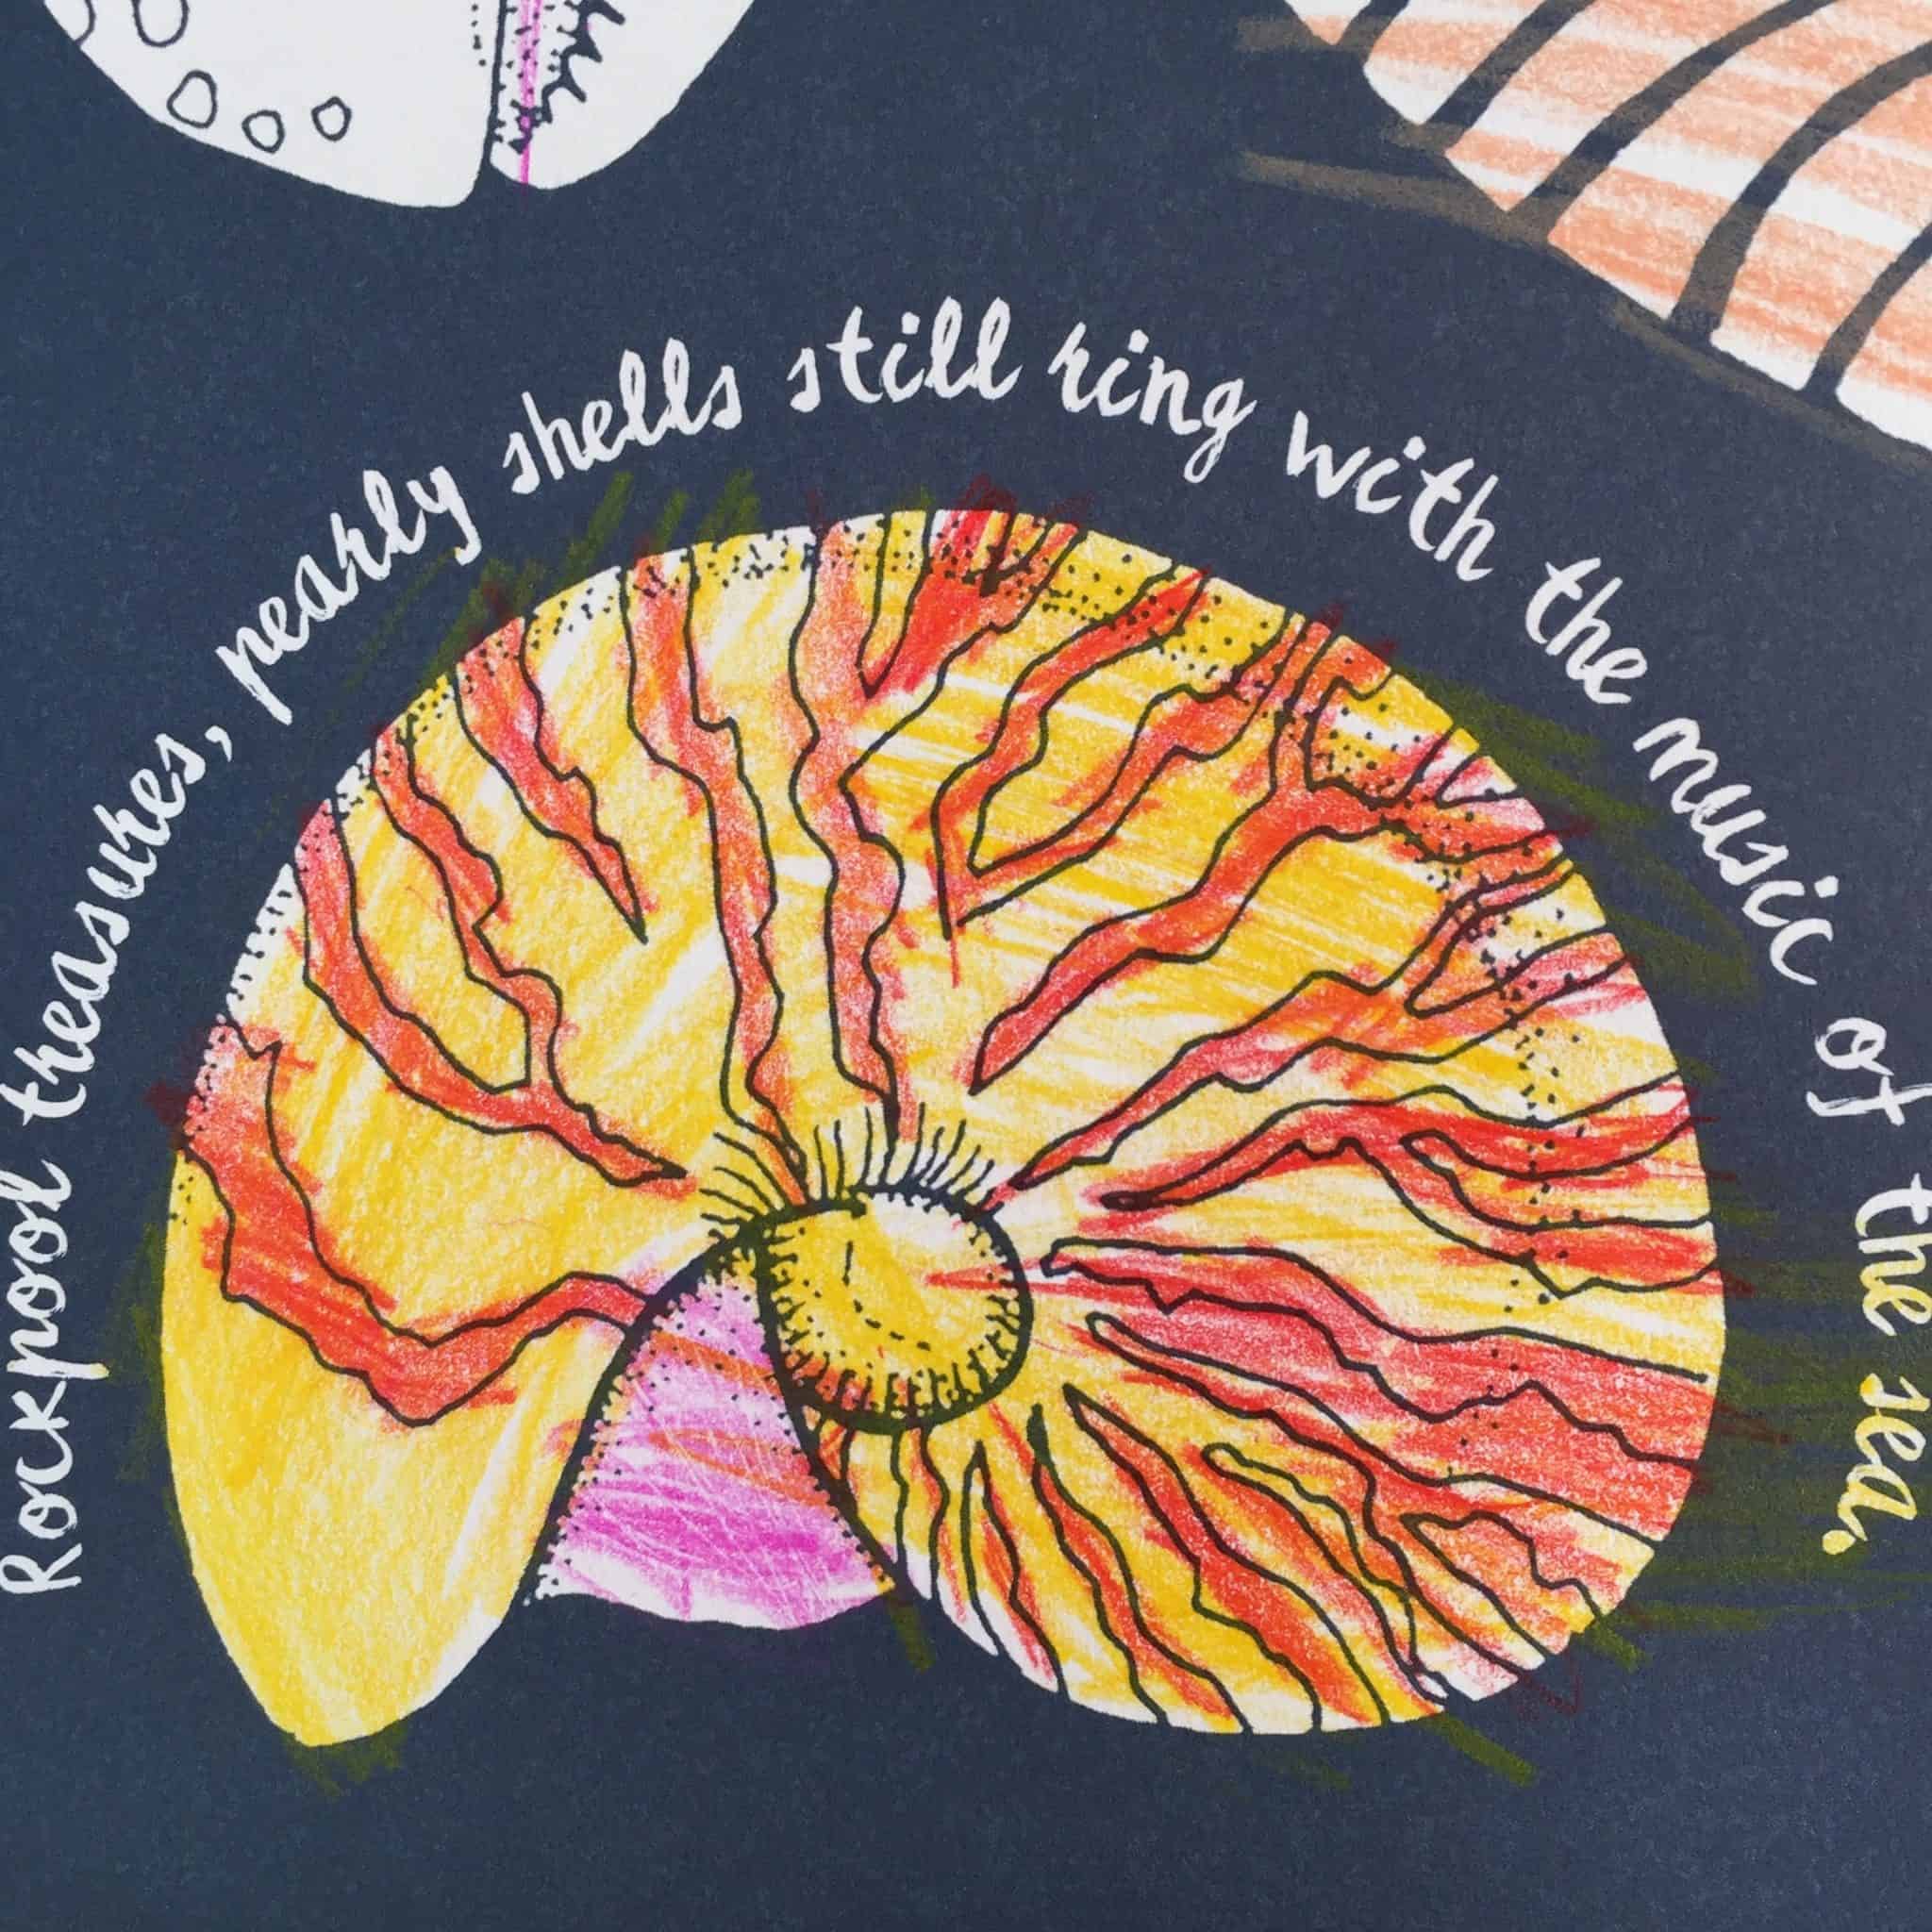 Rockpool treasures, pearly shells still ring with the music of the sea.